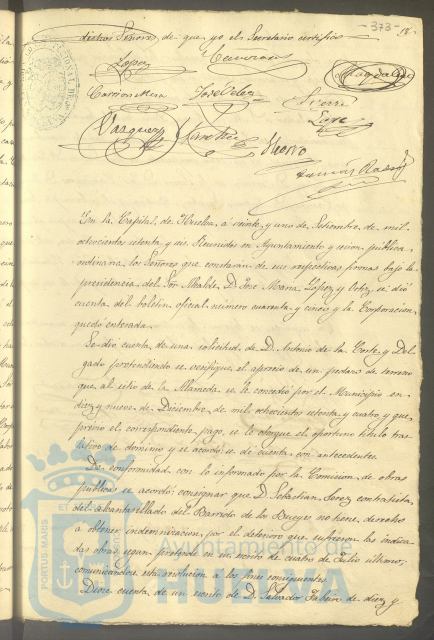 -373- 18.
dichos Señores de que yo el Secretario certifico
Lopez
Carrion Mesa José Velez
Vazquez
Hierro
En la Capital de Huelva á veinte y uno de Setiembre de mil
ochocientos ochenta y seis. Reunidos en Ayuntamiento y sesion pública
ordinaria los Señores que constarán de sus respectivas firmas bajo la
presidencia del Sor. Alcalde D. José Maria Lopez y se dió
cuenta del boletin oficial número cuarenta y cinco y la Corporacion
quedó enterada.
Se dió cuenta de una solicitud de D. Antonio de la Corte y Del-
gado pretendiendo se verifique el aprecio de un pedazo de terreno
que al sitio de la Alameda se le concedió por el Municipio en
diez y nueve de Diciembre de mil ochocientos ochenta y cuatro y que
previo el correspondiente pago se le otorgue el oportuno titulo tras-
lativo de dominio y se acordó se dé cuenta con antecedentes.
De conformidad con lo informado por la Comision de obras
públicas se acordó consignar que D. Sebastian Perez contratista
del alcantarillado del Barrido de los Bueyes no tiene derecho
á obtener indemnizacion por el deterioro que sufrieron las indica-
das obras segun pretende en su escrito de cuatro de Julio último,
comunicandose esta resolucion á los fines consiguientes.
Diose cuenta de un escrito de D. Salvador de diez y
PORTUS MARIS ET
Ayuntamiento de
HUELVA